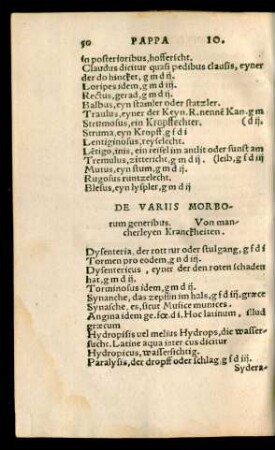 50 PAPPA IO.
in posterioribus, hoffericht.
Claudus dicitur quasi pedibus clausis, eyner
der do hincket, g m d ij.
Loripes idem, g m d ij.
Rectus, gerad, g m d ij.
Balbus, eyn stamler oder statzler.
Traulus, eyner der Keyn. R. nennē Kan. g m
Strumosus, ein Kropffechter, (d ij
Struma, eyn Kropff, g f d i
Lentiginosus, reyslecht.
Lētigo, inis, ein reisel im antlit oder sunst am
Tremulus, zittericht, g m d ij. (leib, g f d iij
Mutus, eyn stum, g m d ij.
Rugosus runtzelecht.
Blesus, eyn lyspler, g m d ij
DE VARIIS MORBO-
rum generibus. Von man-
cherleyen Kranckheiten.
Dysenteria, der rott rur oder stulgang, g f d i
Tormen pro eodem, g n d iij.
Dysentericus, eyner der den roten schaden
hat, g m d ij.
Torminosus idem, g m d ij.
Synanche, das zepflin im hals, g f d iij. græce
Synasche, es, sicut Musice musices.
Angina idem ge. fœ. d i. Hoc latinum, illud
græcum
Hydropisis uel melius Hydrops, die wasser-
sucht. Latine aqua inter cus dicitur
Hydropicus, wassersichtig.
Paralysis, der dropff oder schlag, g f d iij.
Sydera-